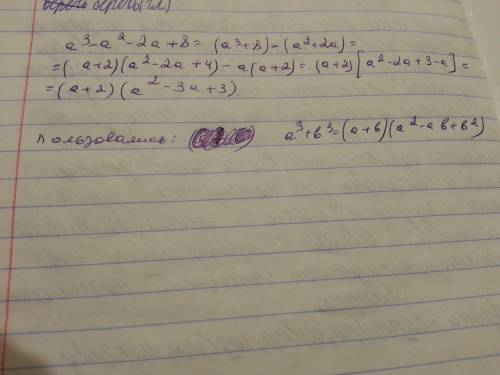 беречь(гл.)
a³-a²-2a+8= (a³+8)-(a²+2a)=
=(a+2)(a²-2a+4)-a(a+2)=(a+2)[a²-2a+3-a]=
=(a+2)(a²-3a+3)
Пользовались: a³+b³=(a+b)(a²-ab+b²)